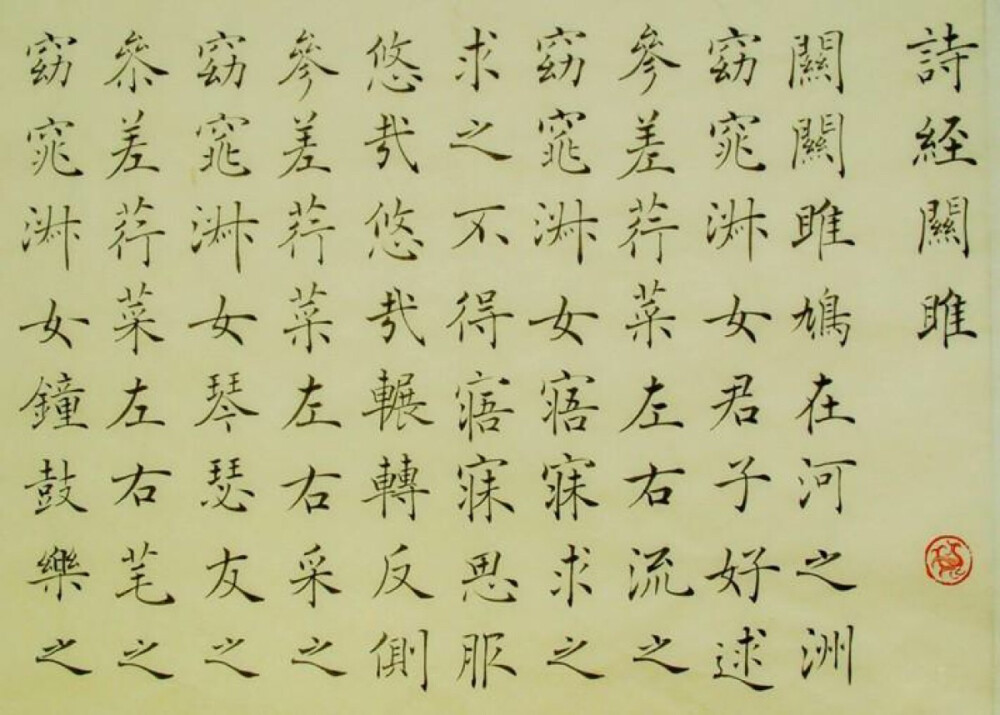 詩経關雎
關關雎鳩在河之洲
窈窕淑女君子好逑
參差荇菜左右流之
窈窕淑女寤寐求之
求之不得寤寐思服
悠哉悠哉輾轉反側
參差荇菜左右采之
窈窕淑女琴瑟友之
參差荇菜左右芼之
窈窕淑女鐘鼓樂之